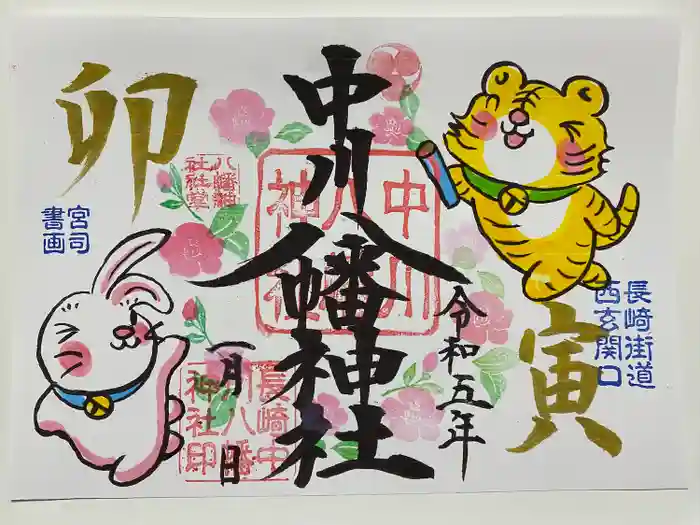 中川八幡神社
令和五年
一月一日
卯
寅
宮司
書画
長崎街道
西玄関口
中川
八幡
神社
長崎中
川八幡
神社印